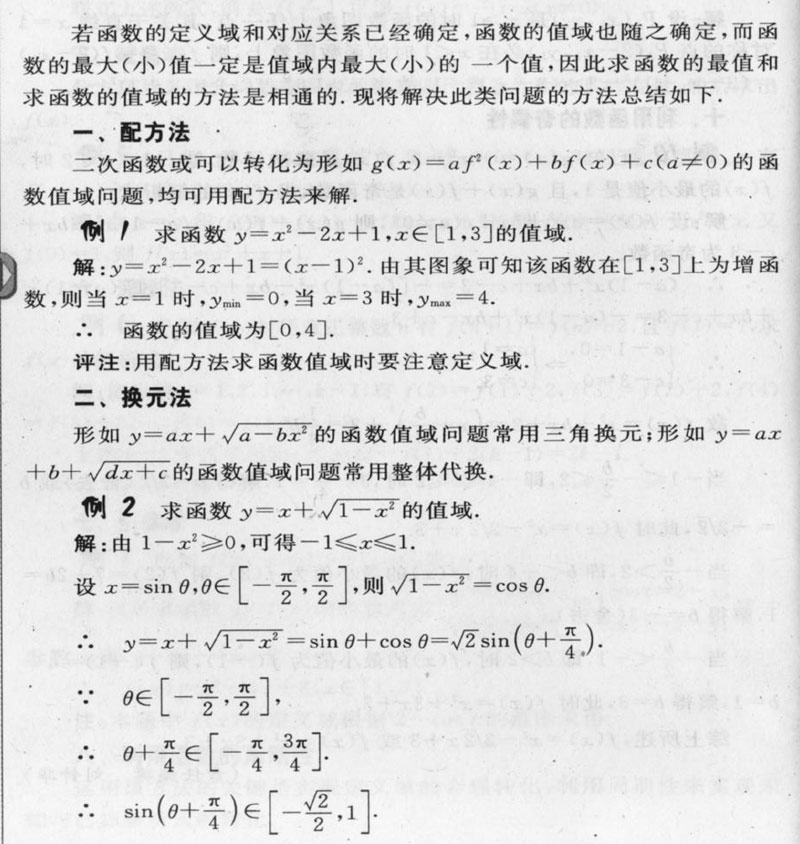 若函数的定义域和对应关系已经确定,函数的值域也随之确定,而函
数的最大(小)值一定是值域内最大(小)的一个值,因此求函数的最值和
求函数的值域的方法是相通的.现将解决此类问题的方法总结如下.
一、配方法
二次函数或可以转化为形如 g(x)=af²(x)+bf(x)+c(a≠0)的函
数值域问题,均可用配方法来解.
例 1 求函数 y=x²-2x+1,x∈[1,3]的值域.
解:y=x²-2x+1=(x-1)².由其图象可知该函数在[1,3]上为增函
数,则当 x=1 时,y_min=0,当 x=3 时,y_max=4.
∴ 函数的值域为[0,4].
评注:用配方法求函数值域时要注意定义域.
二、换元法
形如 y=ax+√(a-bx²) 的函数值域问题常用三角换元;形如 y=ax
+b+√(dx+c) 的函数值域问题常用整体代换.
例 2 求函数 y=x+√(1-x²) 的值域.
解:由 1-x²≥0,可得-1≤x≤1.
设 x=sin θ,θ∈[-π/2,π/2],则√(1-x²)=cos θ.
∴ y=x+√(1-x²)=sin θ+cos θ=√2 sin(θ+π/4).
∵ θ∈[-π/2,π/2],
∴ θ+π/4∈[-π/4,3π/4].
∴ sin(θ+π/4)∈[-√2/2,1].